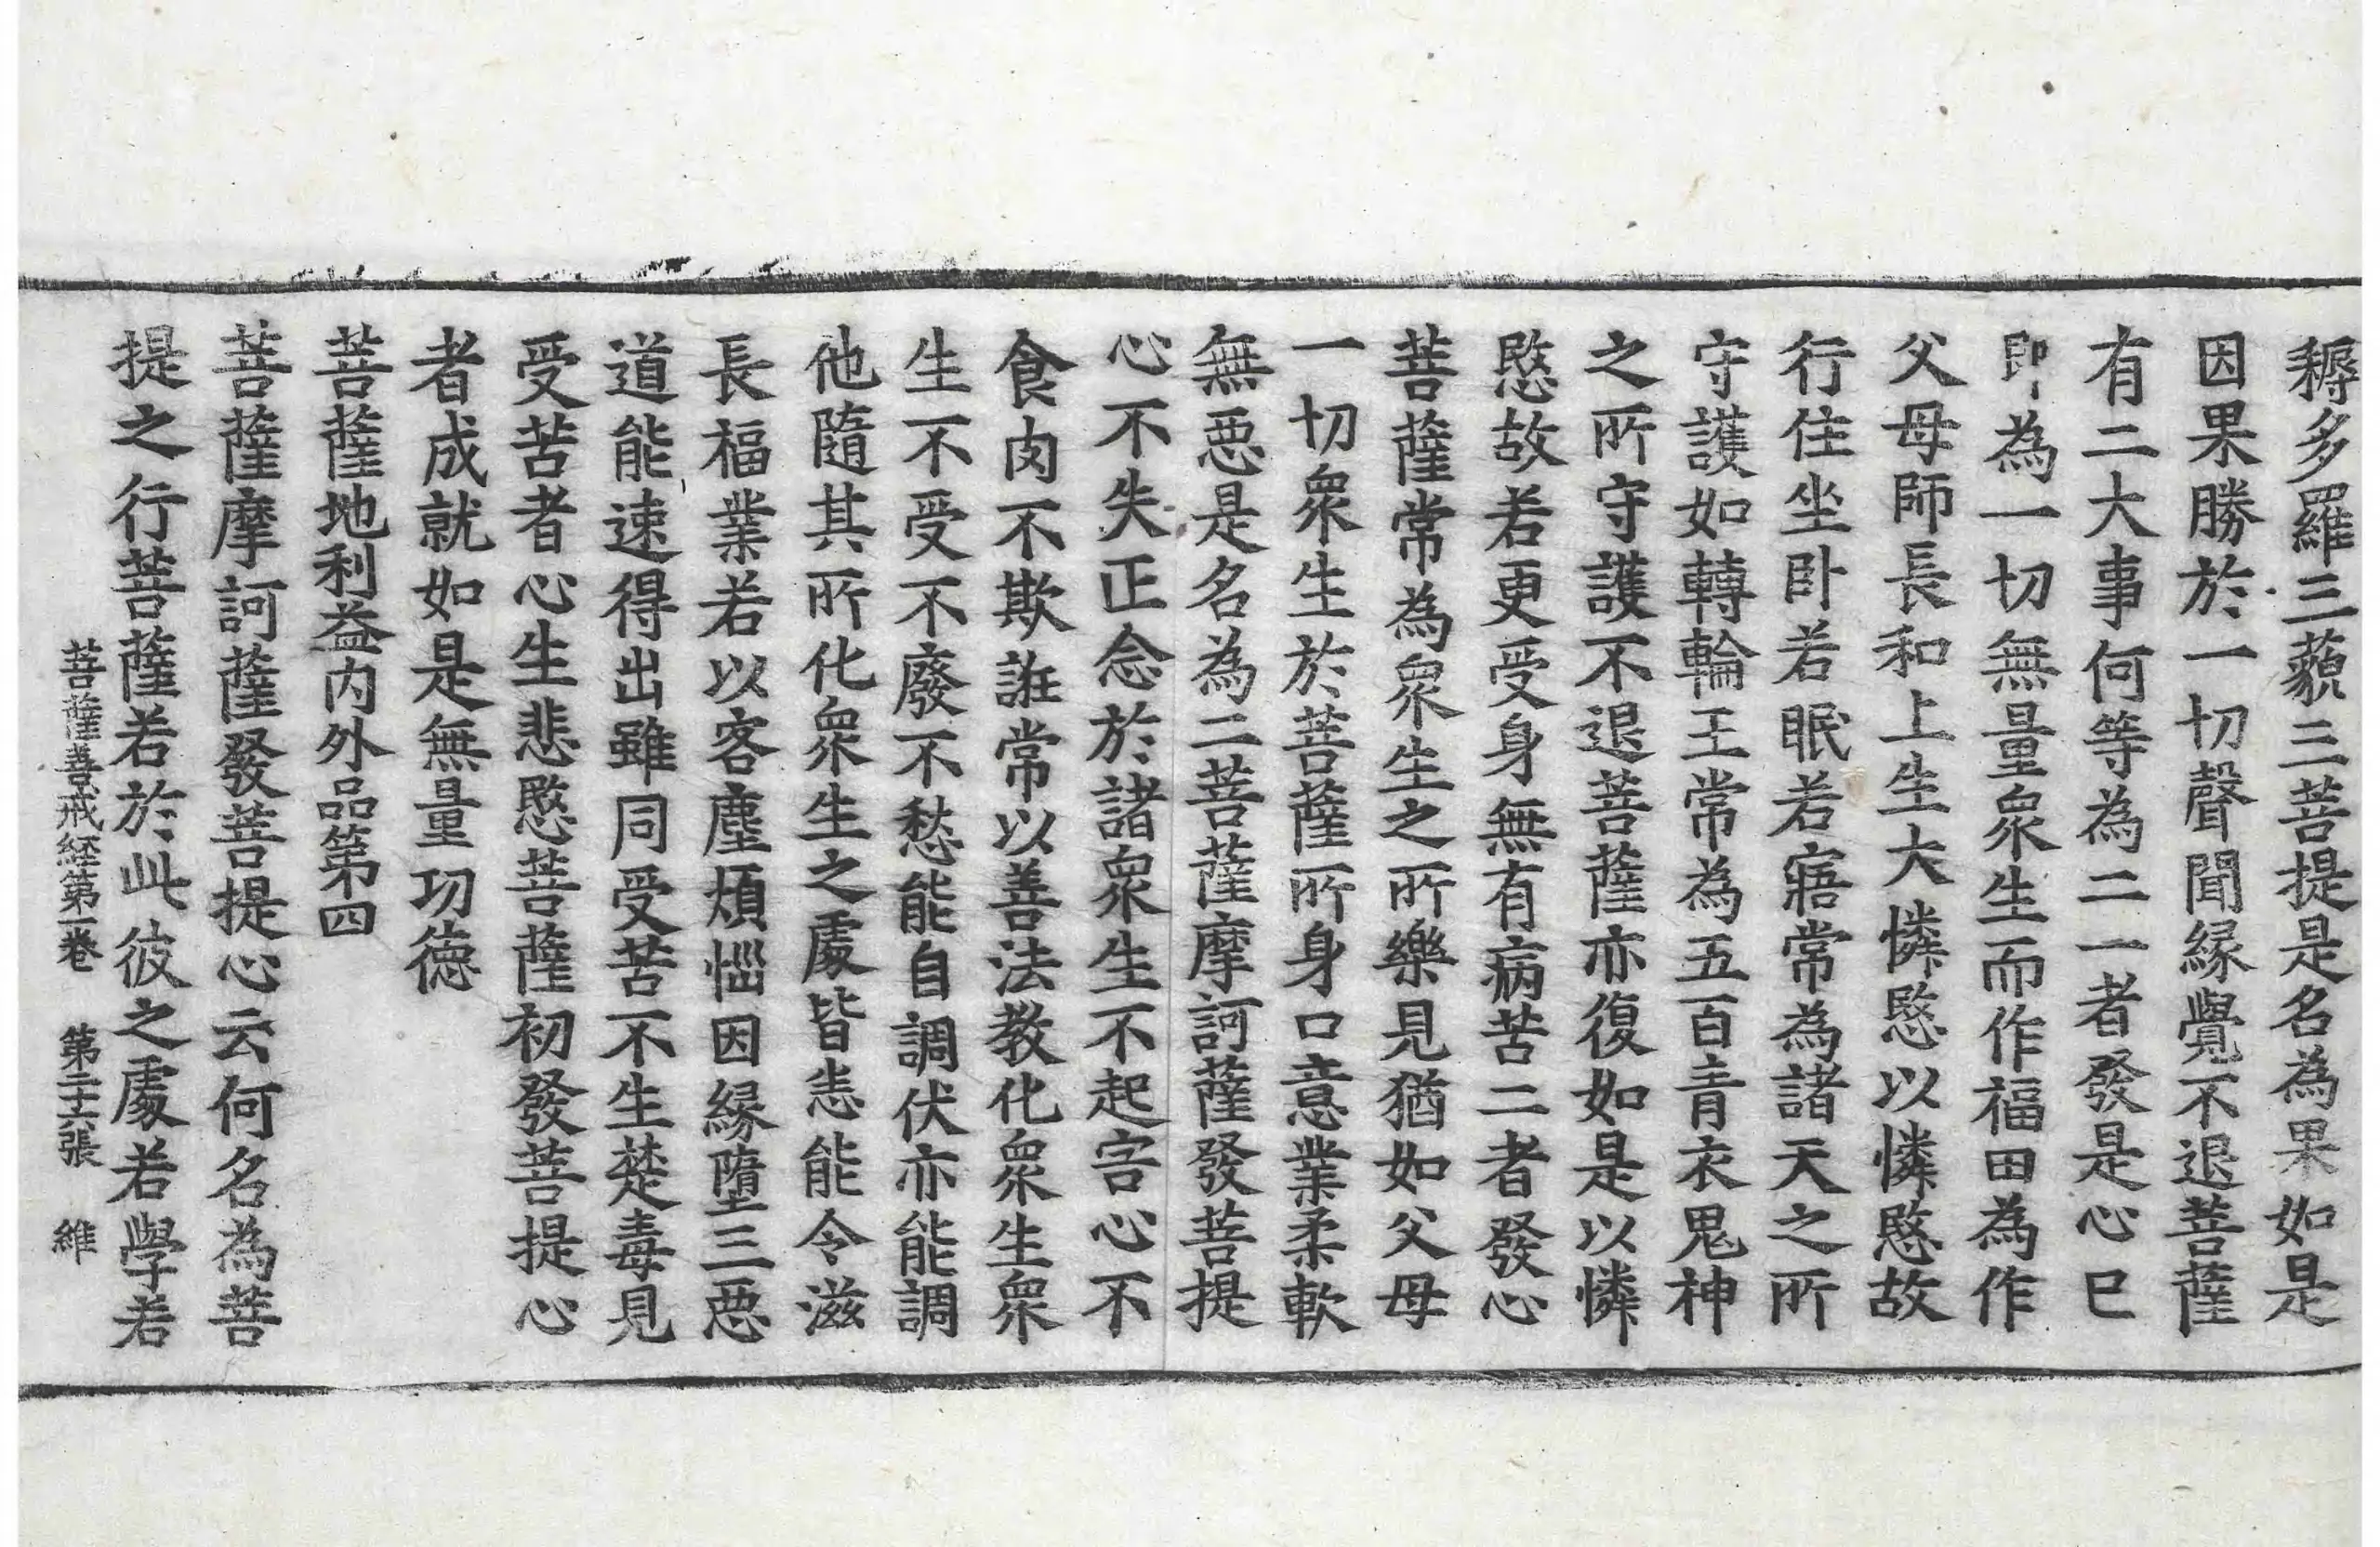 耨多羅三藐三菩提是名為果如是
因果勝於一切聲聞緣覺不退菩薩
有二大事何等為二一者發是心已
即為一切無量衆生而作福田為作
父母師長和上生大憐愍以憐愍故
行住坐卧若眠若寤常為諸天之所
守護如轉輪王常為五百青衣鬼神
之所守護不退菩薩亦復如是以憐
愍故若更受身無有病苦二者發心
菩薩常為衆生之所樂見猶如父母
一切衆生於菩薩所身口意業柔軟
無惡是名為二菩薩摩訶薩發菩提
心不失正念於諸衆生不起害心不
食肉不欺誑常以善法教化衆生衆
生不受不廢不愁能自調伏亦能調
他隨其所化衆生之處皆悉能令滋
長福業若以客塵煩惱因緣墮三惡
道能速得出雖同受苦不生楚毒見
受苦者心生悲愍菩薩初發菩提心
者成就如是無量功德
菩薩地利益內外品第四
菩薩摩訶薩發菩提心云何名為菩
提之行菩薩若於此彼之處若學若
菩薩善戒經第一卷 第二十六張 維